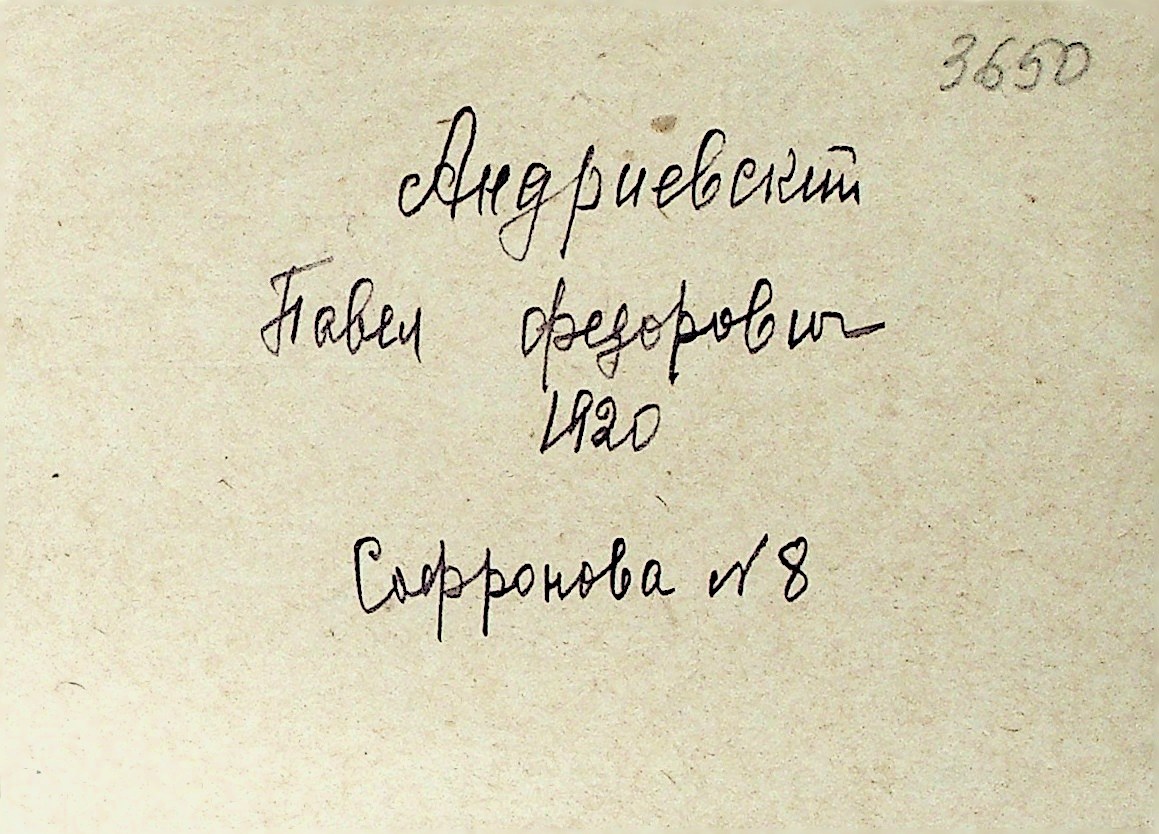 3650
Андриевский
Павел Федорович
1920
Софронова N 8